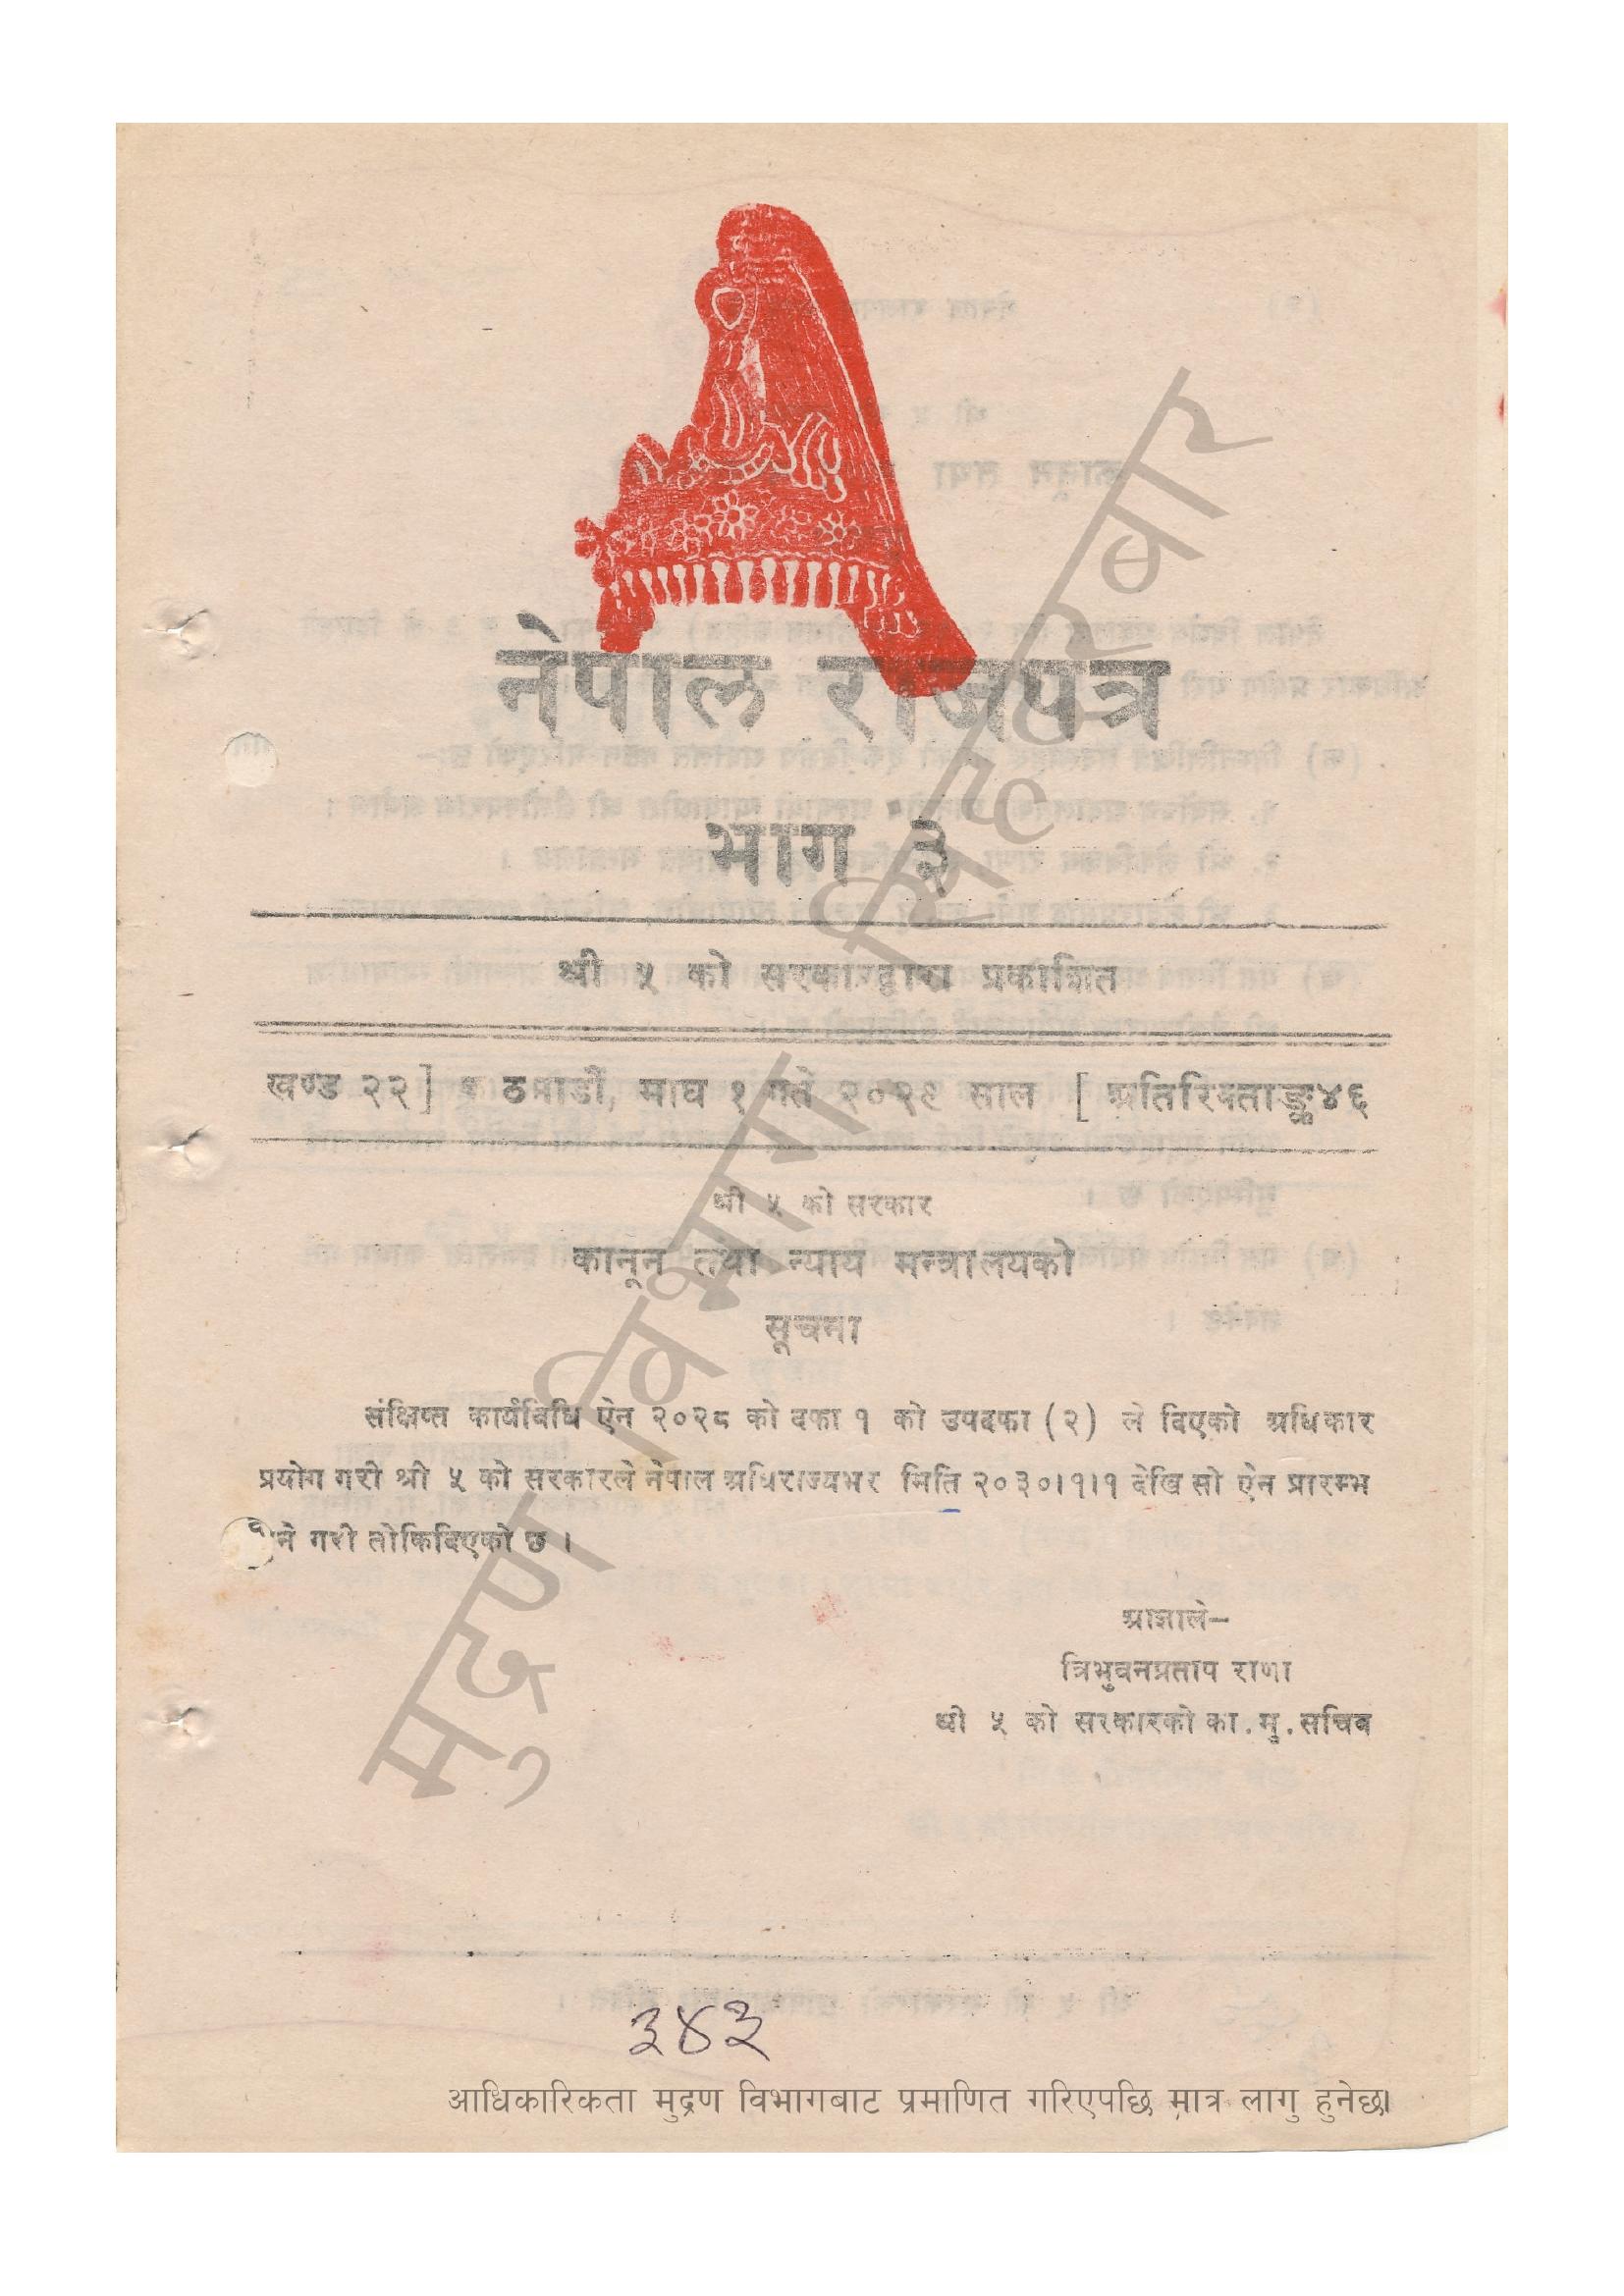 नेपाल राजपत्र
भाग ३
श्री ५ को सरकारद्वारा प्रकाशित
खण्ड २२] ठमाडौं, माघ १ गते २०२९ साल [ अतिरिक्ताङ्क ४६
श्री ५ को सरकार
कानून तथा न्याय मन्त्रालयको
सूचना
संक्षिप्त कार्यविधि ऐन २०२८ को दफा १ को उपदफा (२) ले दिएको अधिकार
प्रयोग गरी श्री ५ को सरकारले नेपाल अधिराज्यभर मिति २०३०।१।१ देखि सो ऐन प्रारम्भ
ने गरी तोकिदिएको छ ।
आज्ञाले–
त्रिभुवनप्रताप राणा
श्री ५ को सरकारको का. मु. सचिव
मुद्रण विभाग सिंहदरवार
३४३
आधिकारिकता मुद्रण विभागबाट प्रमाणित गरिएपछि मात्र लागु हुनेछ।